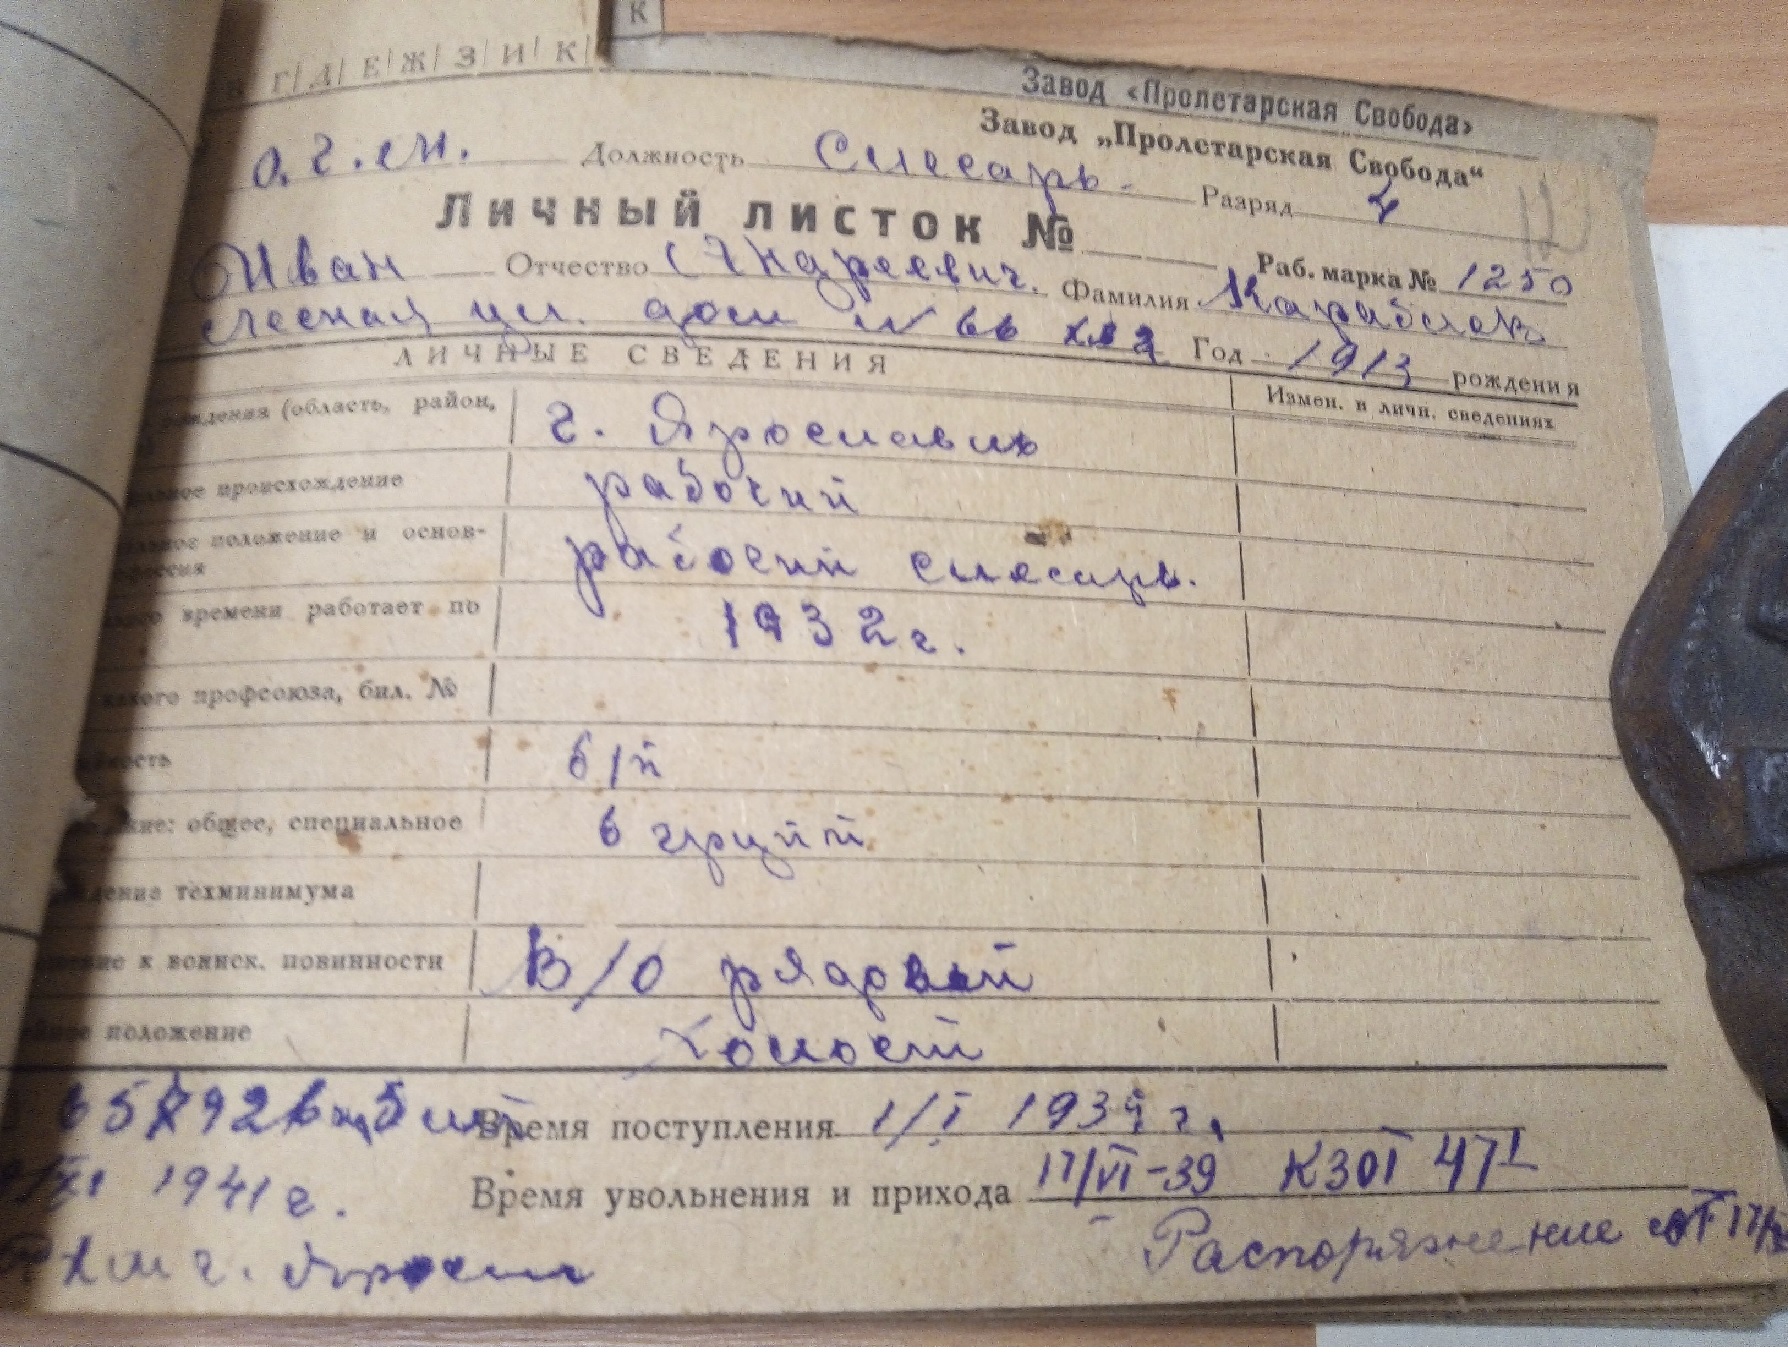 К
Г Д Е Ж З И К
Завод «Пролетарская Свобода»
Завод „Пролетарская Свобода“
Должность Слесарь. Разряд 4
Личный листок №
Раб. марка № 1250
Иван Отчество Андреевич. Фамилия
Лесная ул. дом № 66 Год 1913 рождения
ЛИЧНЫЕ СВЕДЕНИЯ
Измен. в личн. сведениях
(область, район, г. Ярославль
происхождение рабочий
положение и основ- рабочий слесарь.
времени работает по 1932 г.
какого профсоюза, бил. №
б/п
общее, специальное 6 групп
техминимума
к воинск. повинности В/О рядовой
положение Холост
Время поступления 1/I 1939 г.
1941 г. Время увольнения и прихода 17/VI-39 КЗОТ 47
Распоряжение от 17/